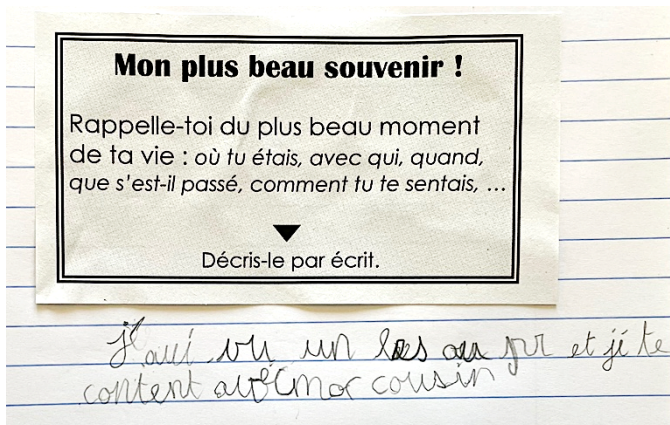 Mon plus beau souvenir !
Rappelle-toi du plus beau moment
de ta vie : où tu étais, avec qui, quand,
que s'est-il passé, comment tu te sentais, ...
Décris-le par écrit.
j'aui vu un et ji te
content avec mor cousin